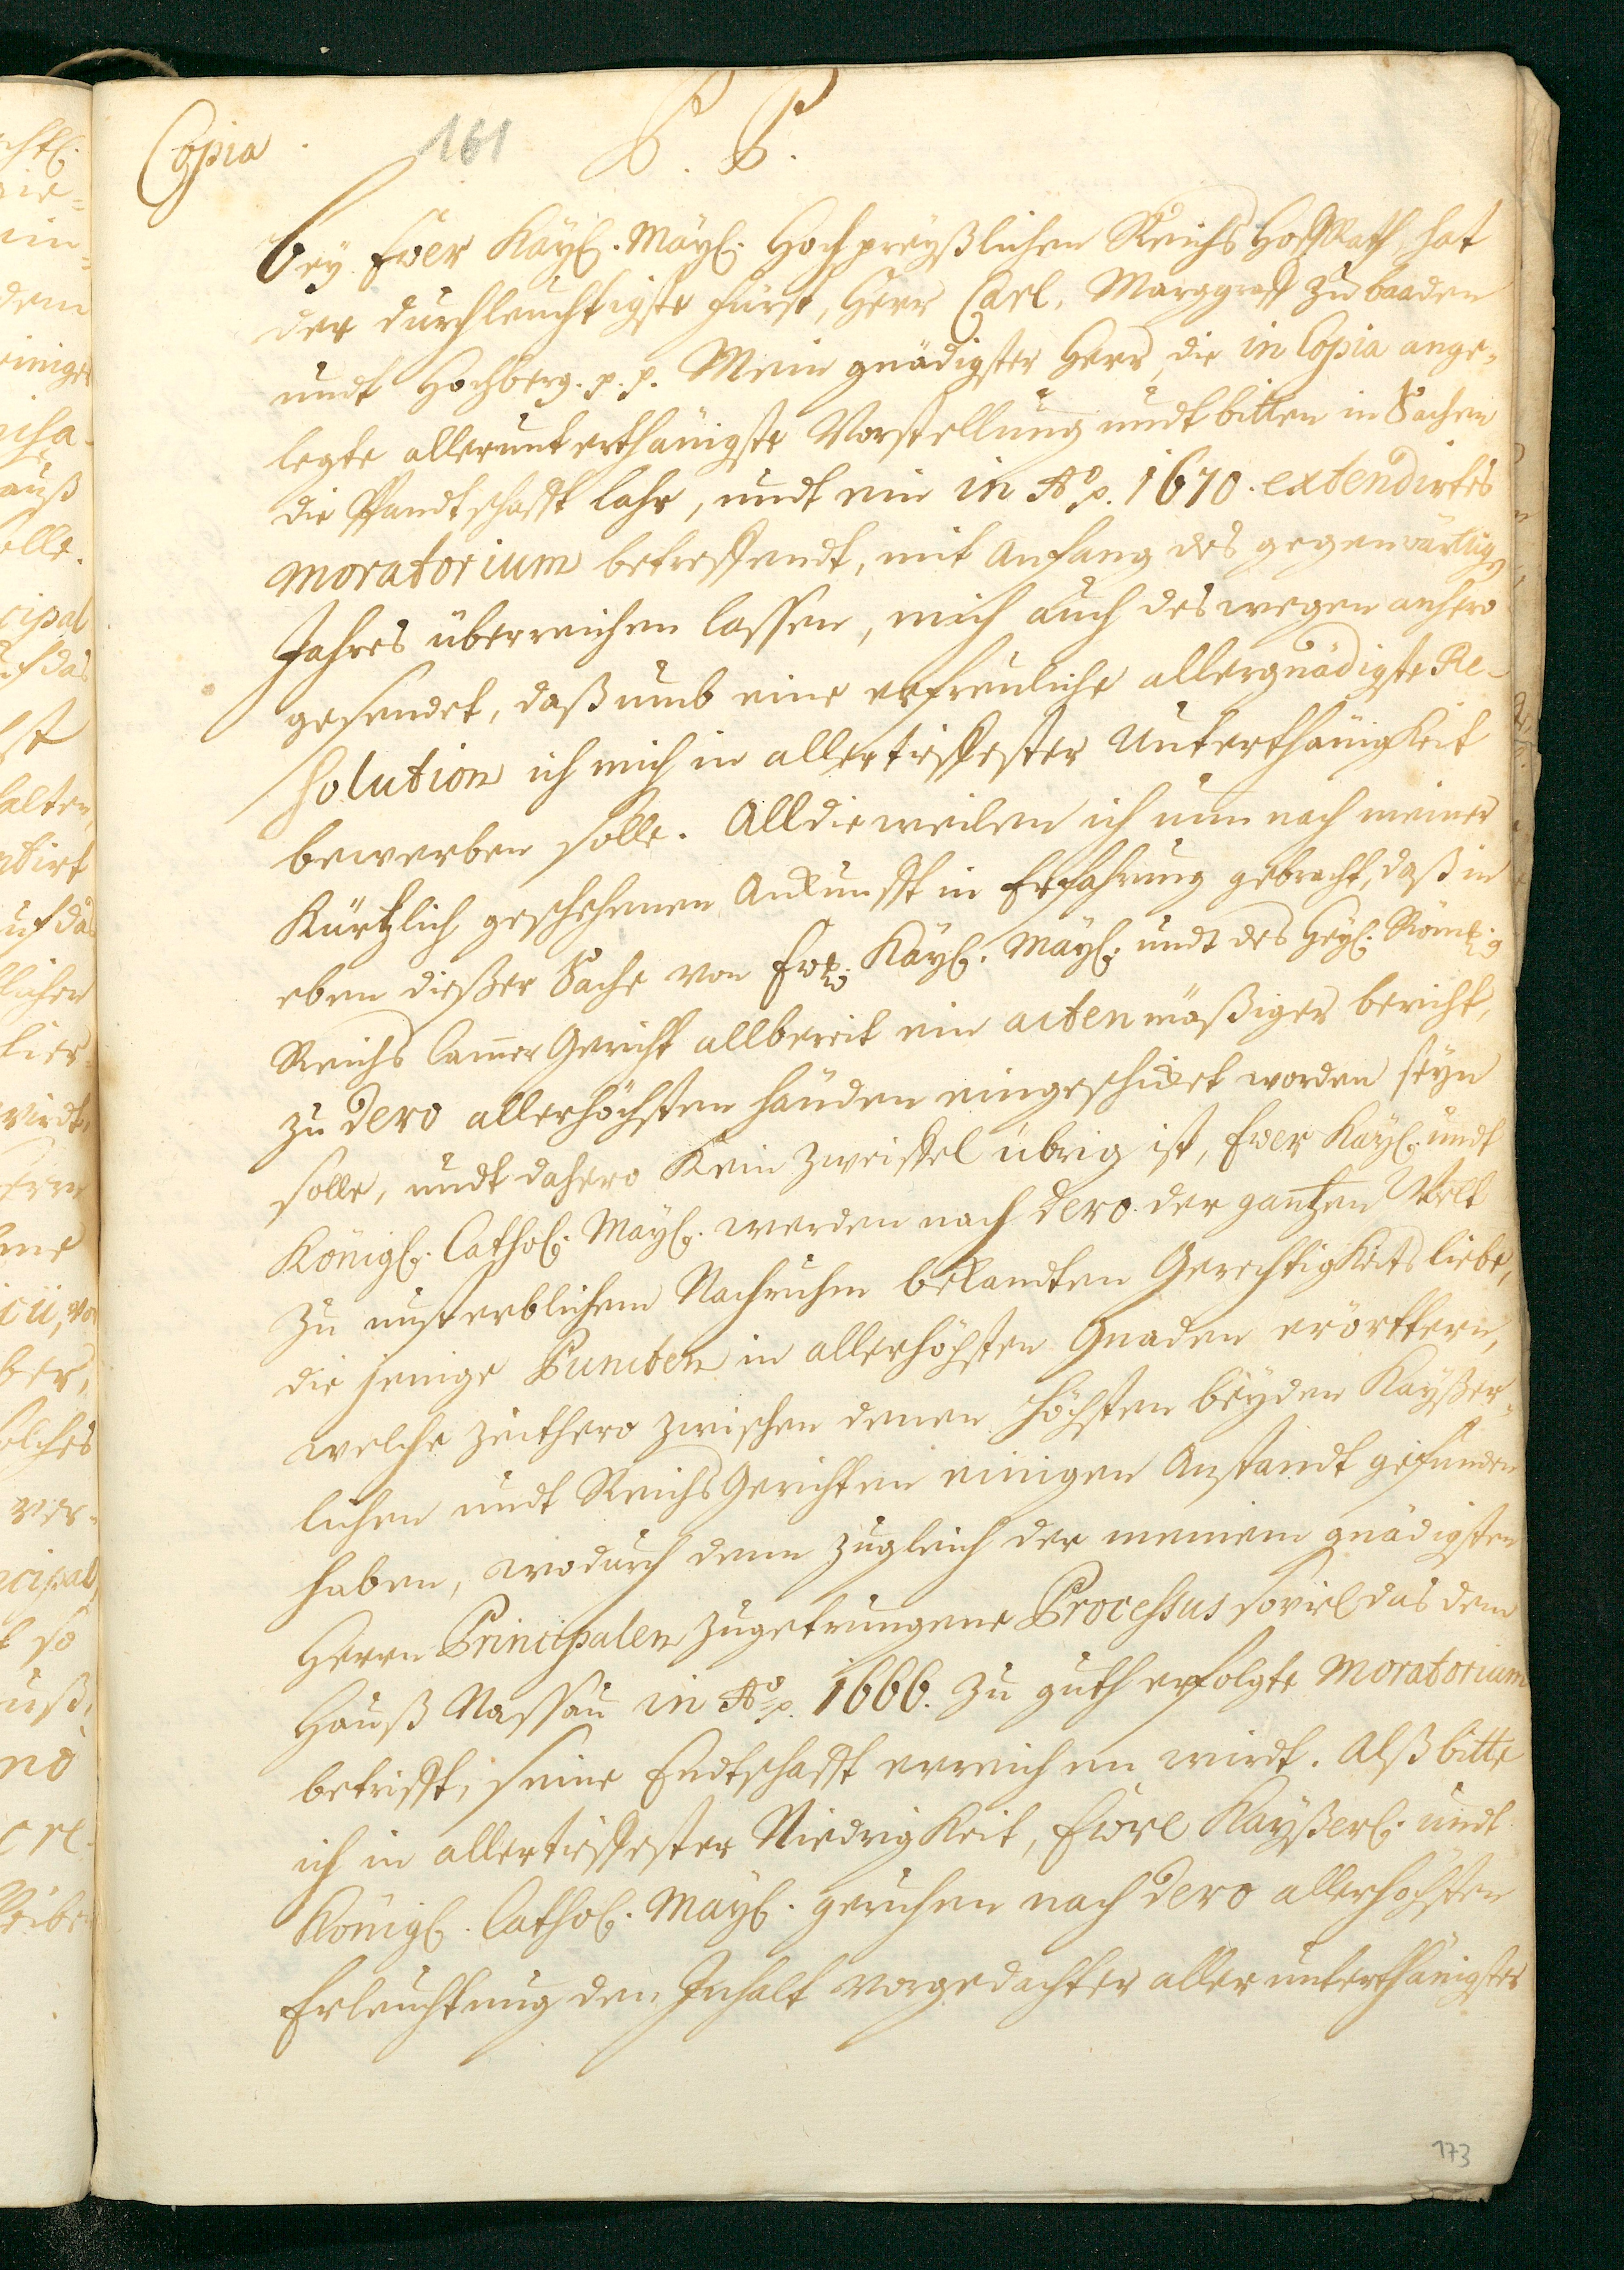 Copia
161
P. P.
Bey Ewer Kayß. Mayß. Hochpreyßlichen Reichs Hoff Rath, hat
der durchleuchtigste Fürst, Herr Carl, Marggraff zu baaden
undt Hochberg. p. p. Mein gnädigster Herr die in Copia ange-
legte allerunterthänigste Vorstellung undt bitten in Sachen
die Pfandtschafft Lahr, undt ein in Ao. 1670. extendirtes
moratorium betreffendt, mit Anfang des gegenwärtig
Jahres überreichen lassen, mich auch deswegen anhero
gesendet, daß umb eine erfreuliche allergnädigste Re-
solution ich mich in allertieffester Unterthänigkeit
bewerben solle. Alldieweilen ich nun nach meiner
Kürtzlich geschehenen Ankunfft in Erfahrung gebracht, daß in
eben dießer Sache von Ew. Kayß. Mayß. undt des Heyl. Röml.
Reichs Cammer Gericht allbereit ein actenmäßiger bericht,
zu Dero allerhöchsten Händen eingeschicket worden seyn
solle, undt dahero Kein Zweiffel übrig ist, Ewer Kayß. undt
Königl. Cathol. Mayß. werden nach Dero der gantzen Welt
zu unsterblichem Nachruhm bekandten Gerechtigkeits liebe,
die jenige Puncten in allerhöchsten Gnaden erörttern,
welche zeithero zwischen denen höchsten beyden Kayßer-
lichen undt Reichs Gerichten einigen Anstandt gefunden
haben, wodurch denn zugleich der meinem gnädigsten
Herrn Principalen zugetrungene Processus soviel das dem
Hauß Nassau in Ao. 1666. zu guth erfolgte Moratorium
betrifft, seine Endtschafft erreichen wirdt. Alß bitte
ich in allertieffester Niedrigkeit, Ewre Kayßerl. undt
Königl. Cathol. Mayß. geruhen nach Dero allerhöchsten
Erleuchtung den Inhalt vorgedachter allerunterthänigster
173